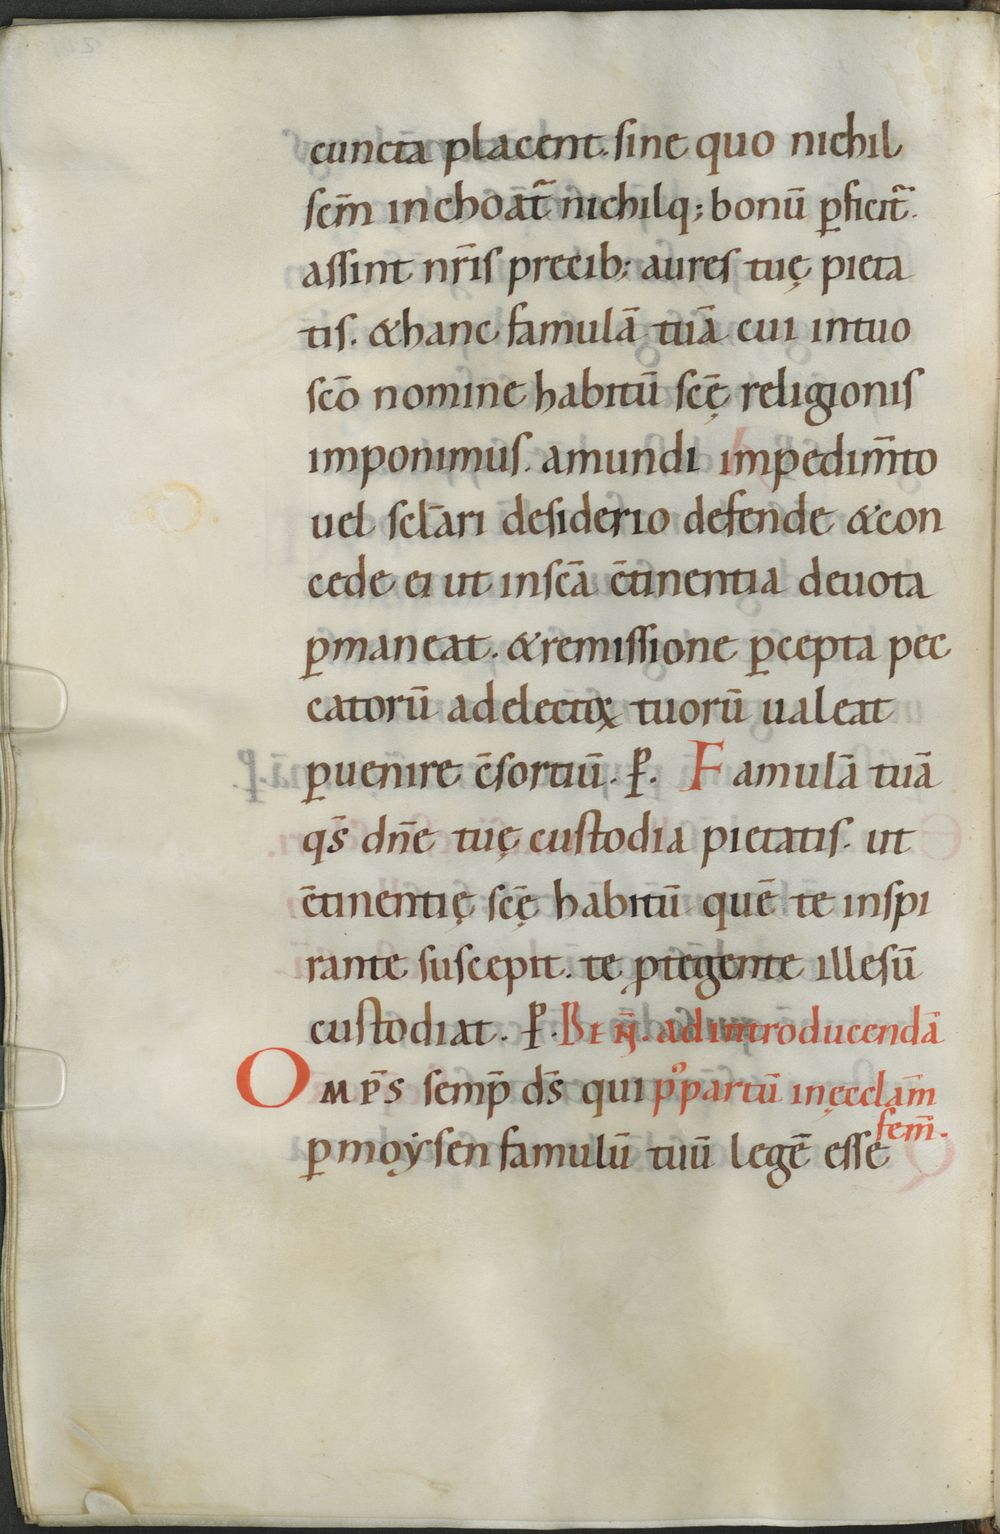 cuncta placent. sine quo nichil
scm̄ inchoat᷒ nichilq; bonū ꝑficit᷒.
assint nr̄is precib; aures tuę pieta
tis. & hanc famulā tuā cui intuo
scō nomine habitū scę̄ religionis
imponimus. amundi impedim̄to
uel scl̄ari desiderio defende & con
cede ei ut inscā c̄tinentia deuota
ꝑmaneat. & remissione ꝑcepta pec
catorū adelectoꝝ tuorū ualeat
ꝑuenire c̄sortiū. P̱. Famulā tuā
qs̄ dn̄e tuę custodia pietatis. ut
c̄tinentię scę̄ habitū quē te inspi
rante suscepit. te ꝓtegente illesū
custodiat. P̱. BEN̄. ad introducendā
OMP̄S semp̄ ds̄ qui pͦpartū inęcclam̄
fem̄.
ꝑmoẏsen famulū tuū legē esse